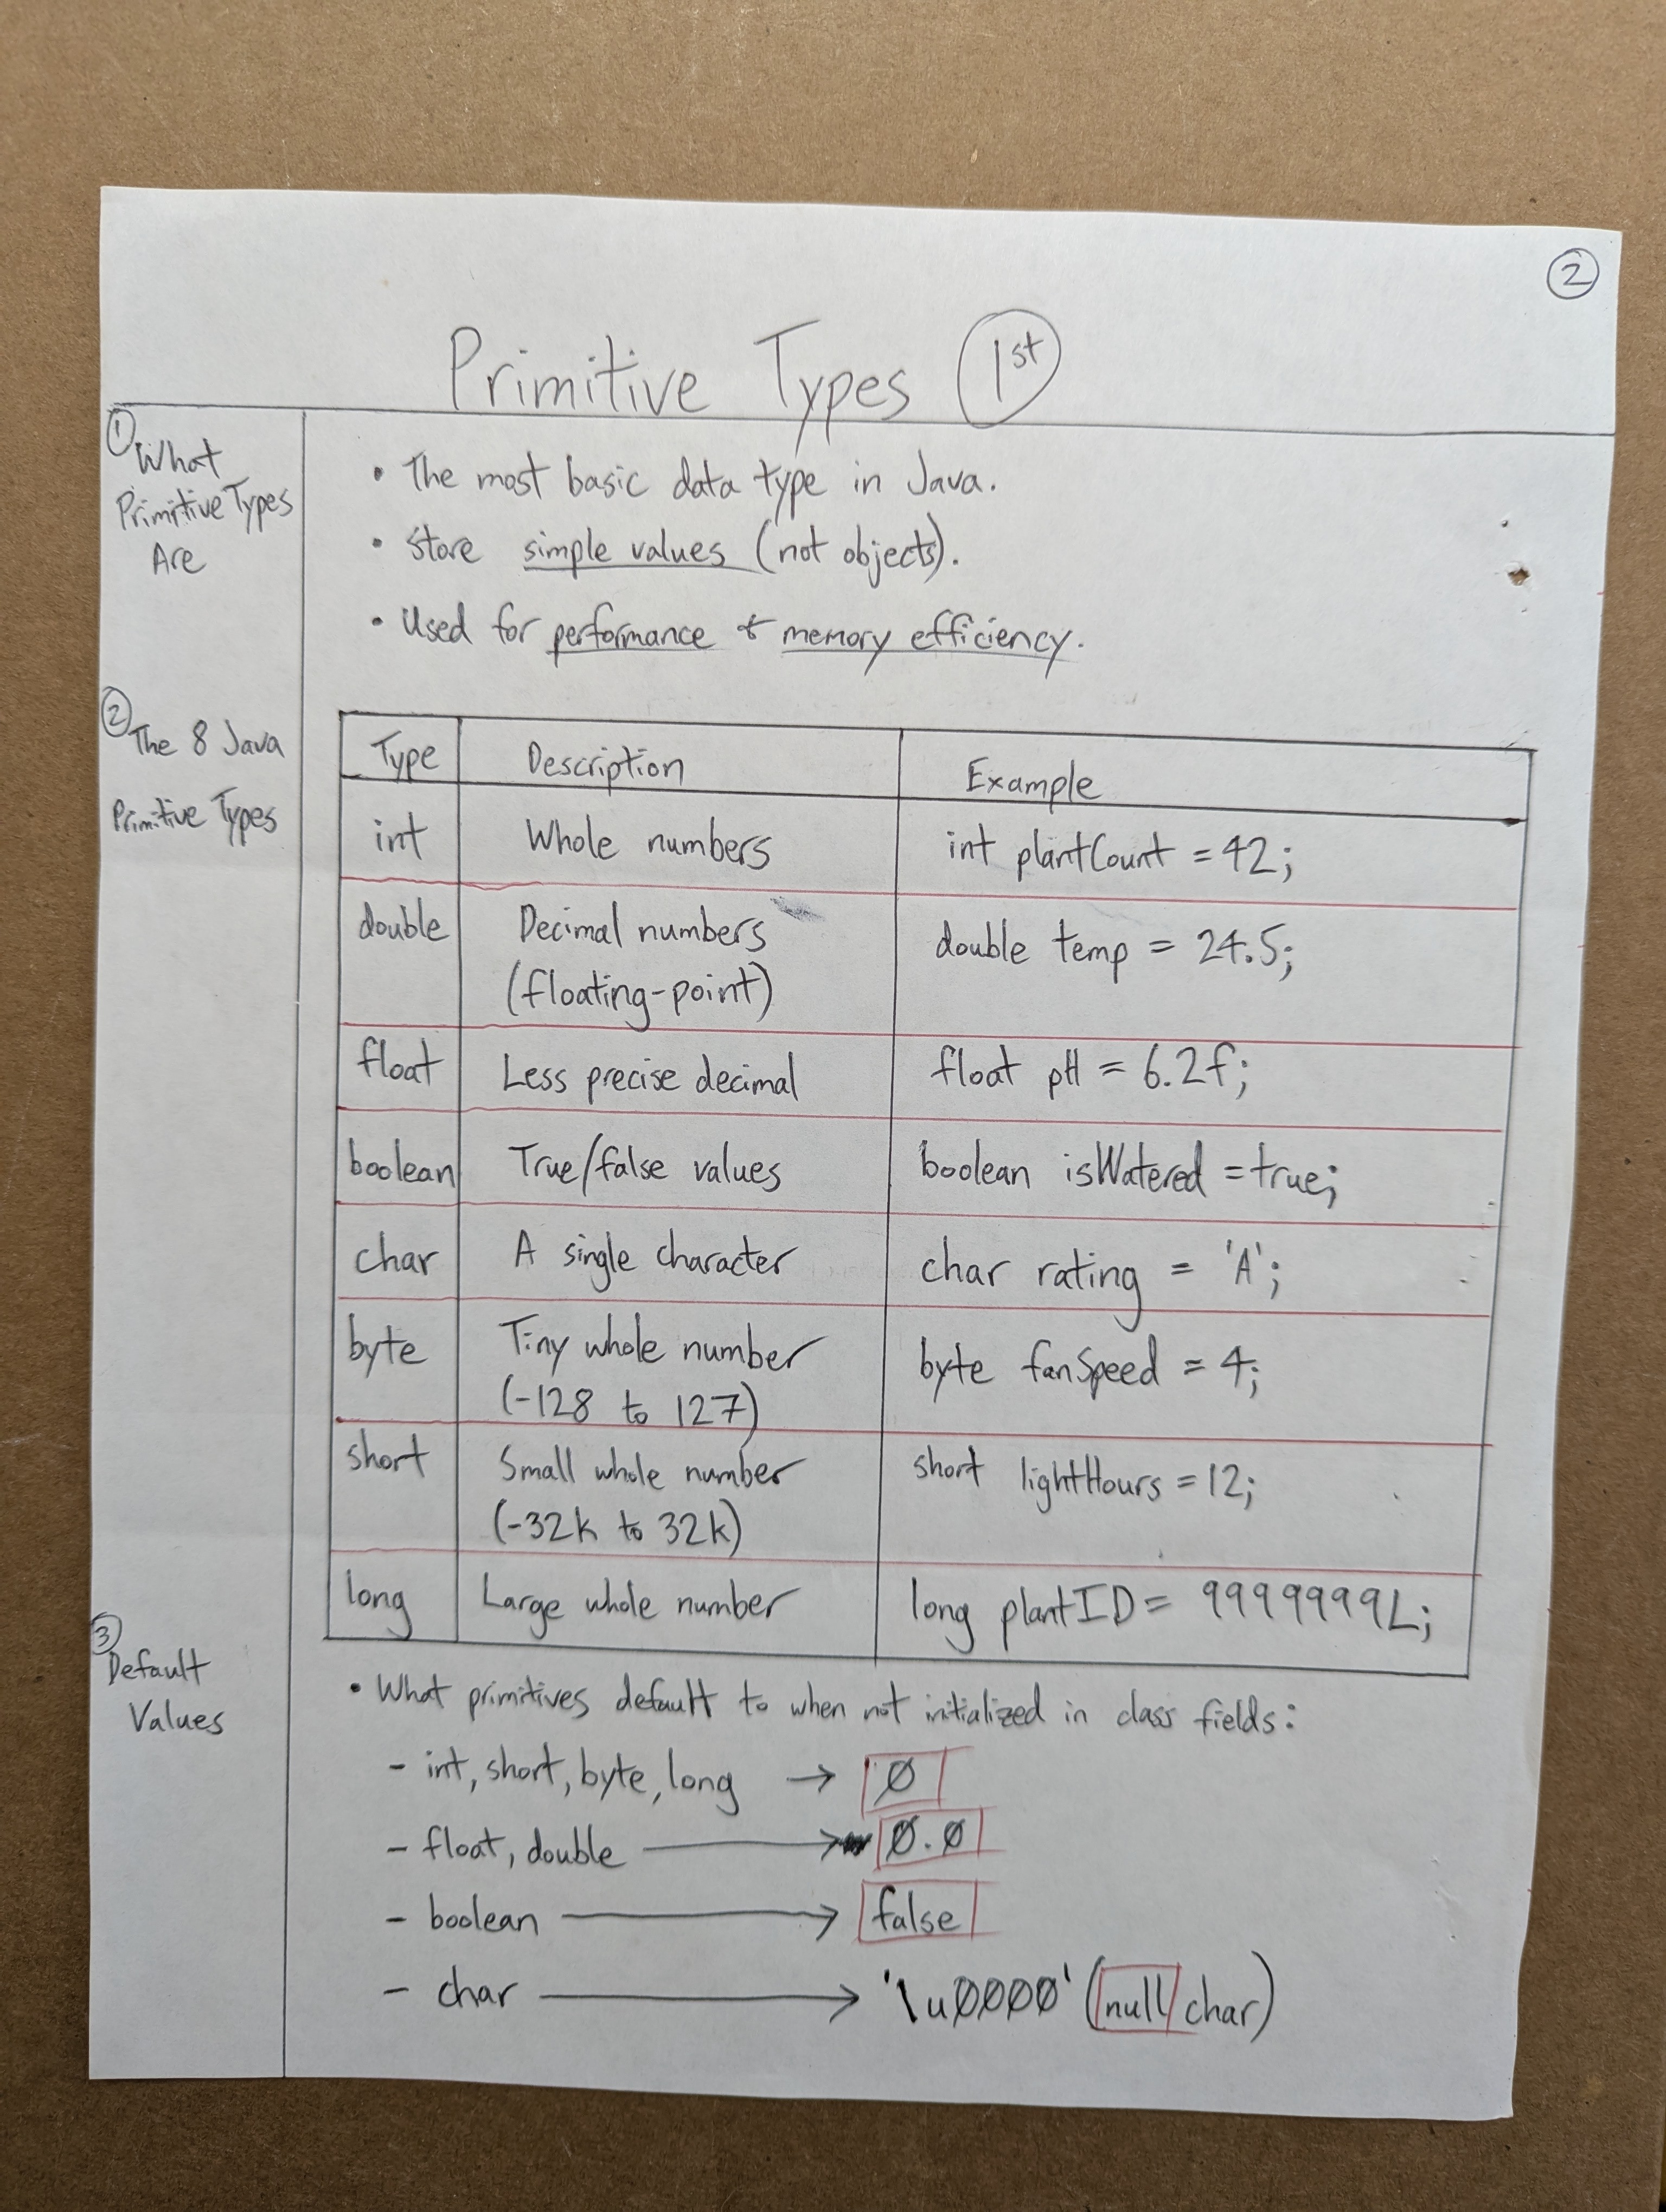 2
Primitive Types 1st
1 What
Primitive Types
Are
• The most basic data type in Java.
• Store simple values (not objects).
• Used for performance & memory efficiency.
2 The 8 Java
Primitive Types
Type Description Example
int Whole numbers int plantCount = 42;
double Decimal numbers double temp = 24.5;
(floating-point)
float Less precise decimal float pH = 6.2f;
boolean True/false values boolean isWatered = true;
char A single character char rating = 'A';
byte Tiny whole number byte fanSpeed = 4;
(-128 to 127)
short Small whole number short lightHours = 12;
(-32k to 32k)
long Large whole number long plantID = 9999999L;
3 Default
Values
• What primitives default to when not initialized in class fields:
- int, short, byte, long → 0
- float, double → 0.0
- boolean → false
- char → '\u0000' (null char)